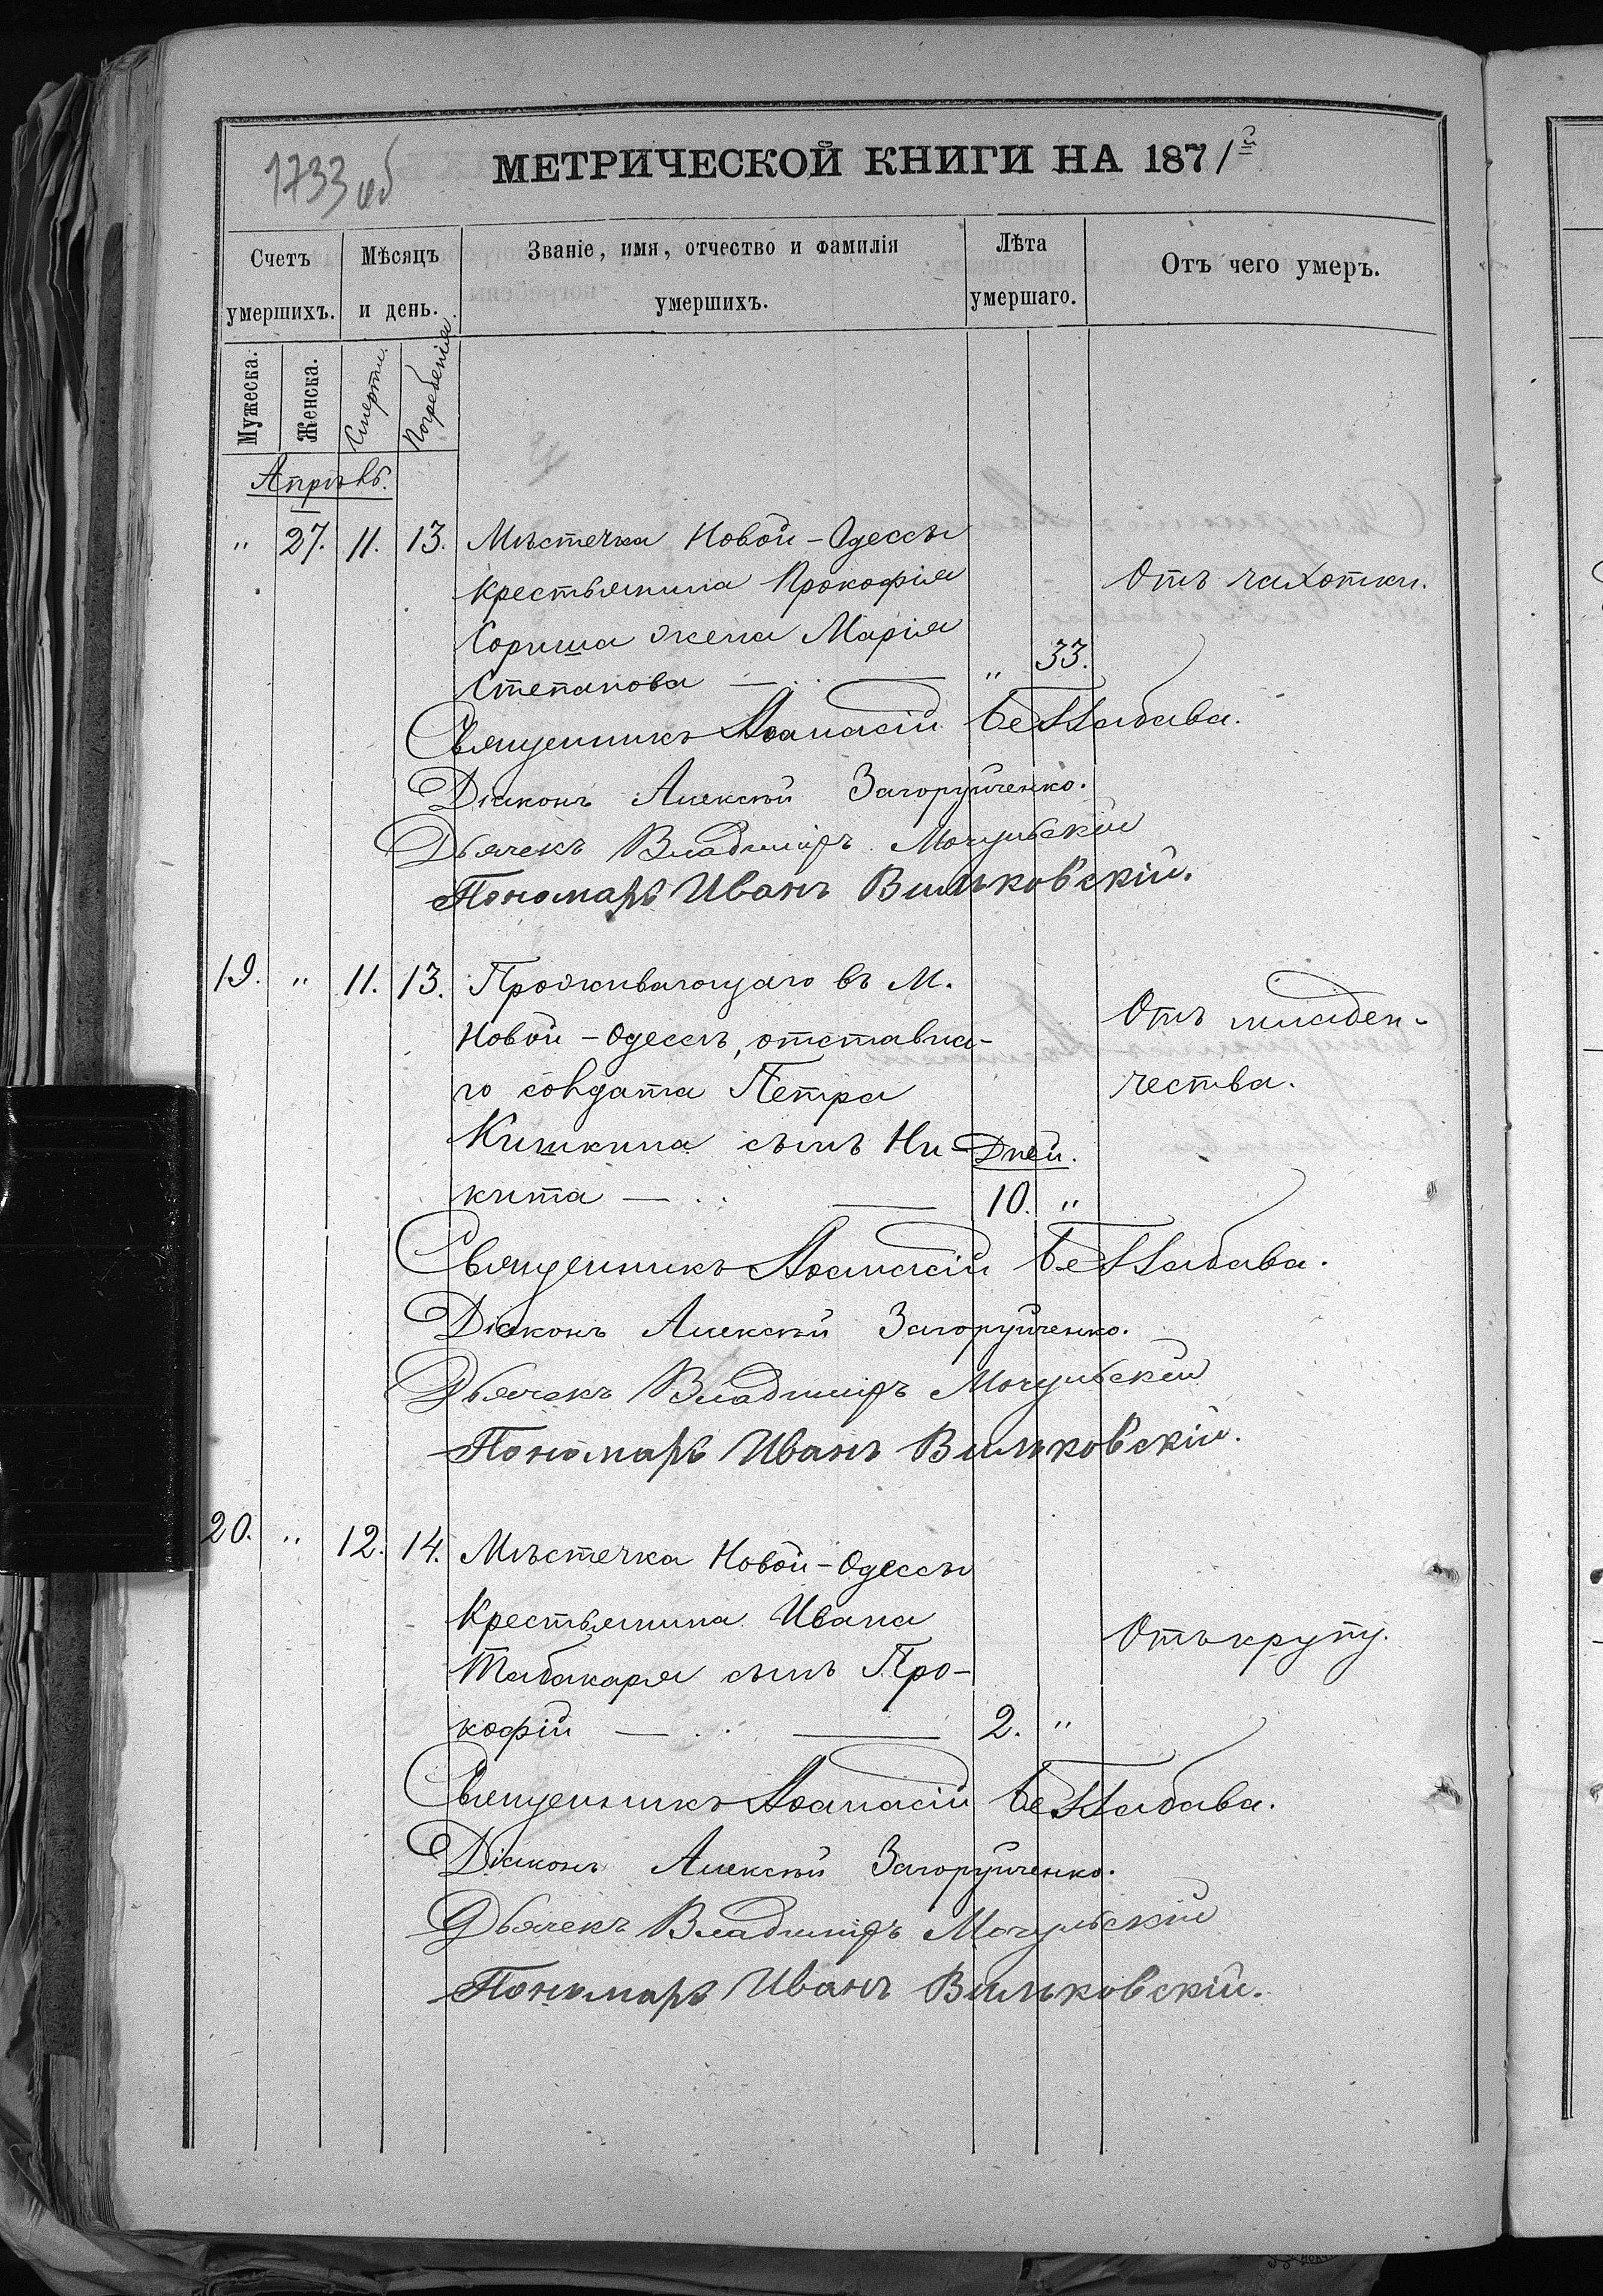 1733 об
МЕТРИЧЕСКОЙ КНИГИ НА 1871й
Счетъ умершихъ.
Мѣсяцъ и день.
Званіе, имя, отчество и фамилія умершихъ.
Лѣта умершаго.
Отъ чего умеръ.
Мужеска.
Женска.
Смерти.
Погребенія.
Апрѣль.
" 27. 11. 13. Мѣстечка Новой-Одессы
крестьянина Прокофія
Отъ чахотки.
Сориша жена Марія
Степанова — " 33.
Священникъ Аѳанасій Беззабава.
Діаконъ Алексѣй Загоруйченко.
Дьячекъ Владиміръ Мочульскій
Пономарь Иванъ Вильковскій.
19. " 11. 13. Проживающаго въ М.
Новой-Одессѣ, отставна-
Отъ младен-
го солдата Петра
чества.
Кишкина сынъ Ни-
Дней.
кита — 10. "
Священникъ Аѳанасій Беззабава.
Діаконъ Алексѣй Загоруйченко.
Дьячекъ Владиміръ Мочульскій
Пономарь Иванъ Вильковскій.
20. " 12. 14. Мѣстечка Новой-Одессы
Крестьянина Ивана
Отъ крупу.
Табакаря сынъ Про-
кофій — 2. "
Священникъ Аѳанасій Беззабава.
Діаконъ Алексѣй Загоруйченко.
Дьячекъ Владиміръ Мочульскій
Пономарь Иванъ Вильковскій.